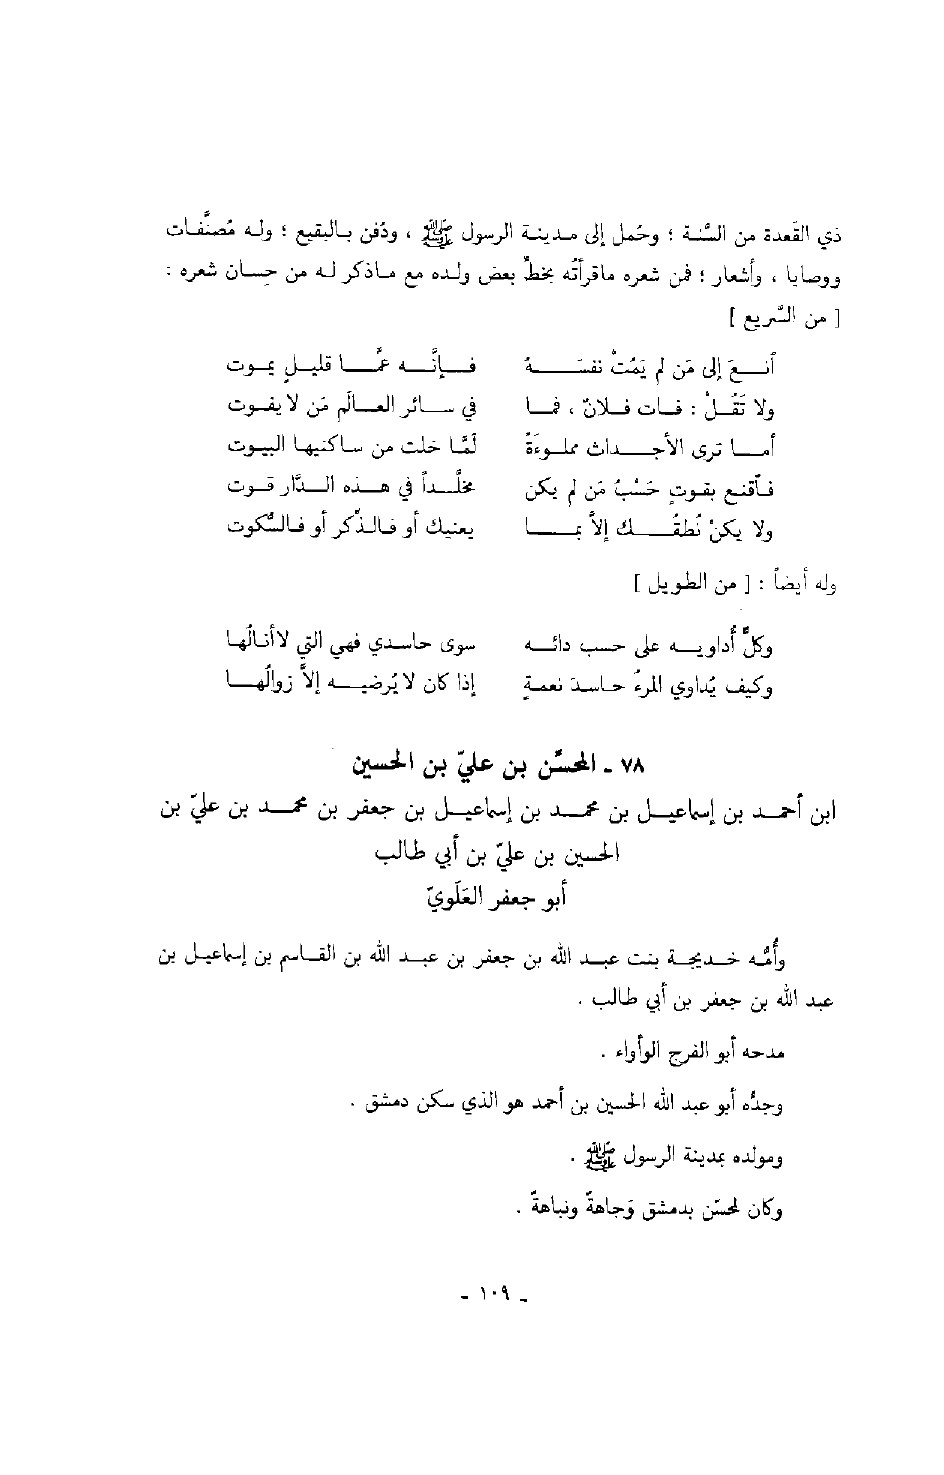 ذي القَعدة من السَّنة ؛ وحُمل إلى مدينة الرسول ﷺ ، ودُفن بالبقيع ؛ وله مُصنَّفات
ووصايا ، وأشعار ؛ فمن شعره ماقرأتُه بخطِّ بعض ولده مع ماذكر له من حِسان شعره :
[ من السَّريع ]
أنعَ إلى مَن لم يَمُتْ نفسَهُ فإنَّه عمَّا قليلٍ يموت
ولا تَقُلْ : فات فلانٌ ، فما في سائر العالَم مَن لا يفوت
أما ترى الأجداث مملوءَةً لَمَّا خلت من ساكنيها البيوت
فاقنع بقوتٍ حَسْبُ مَن لم يكن مخلَّداً في هذه الدَّار قوت
ولا يكنْ نُطقُك إلاَّ بما يعنيك أو فالذِّكر أو فالسُّكوت
وله أيضاً : [ من الطويل ]
وكلٌّ أداويه على حسب دائه سوى حاسدي فهي التي لاأنالُها
وكيف يُداوي المرءُ حاسدَ نعمةٍ إذا كان لا يُرضيه إلاَّ زوالُها
٧٨ ـ المحسّن بن عليّ بن الحسين
ابن أحمد بن إسماعيل بن محمد بن إسماعيل بن جعفر بن محمد بن عليّ بن
الحسين بن عليّ بن أبي طالب
أبو جعفر العَلَويّ
وأُمُّه خديجة بنت عبد الله بن جعفر بن عبد الله بن القاسم بن إسماعيل بن
عبد الله بن جعفر بن أبي طالب .
مدحه أبو الفرج الوأواء .
وجدُّه أبو عبد الله الحسين بن أحمد هو الذي سكن دمشق .
ومولده بمدينة الرسول ﷺ .
وكان لمحسّن بدمشق وَجاهةٌ ونباهةٌ .
ـ ١٠٩ ـ